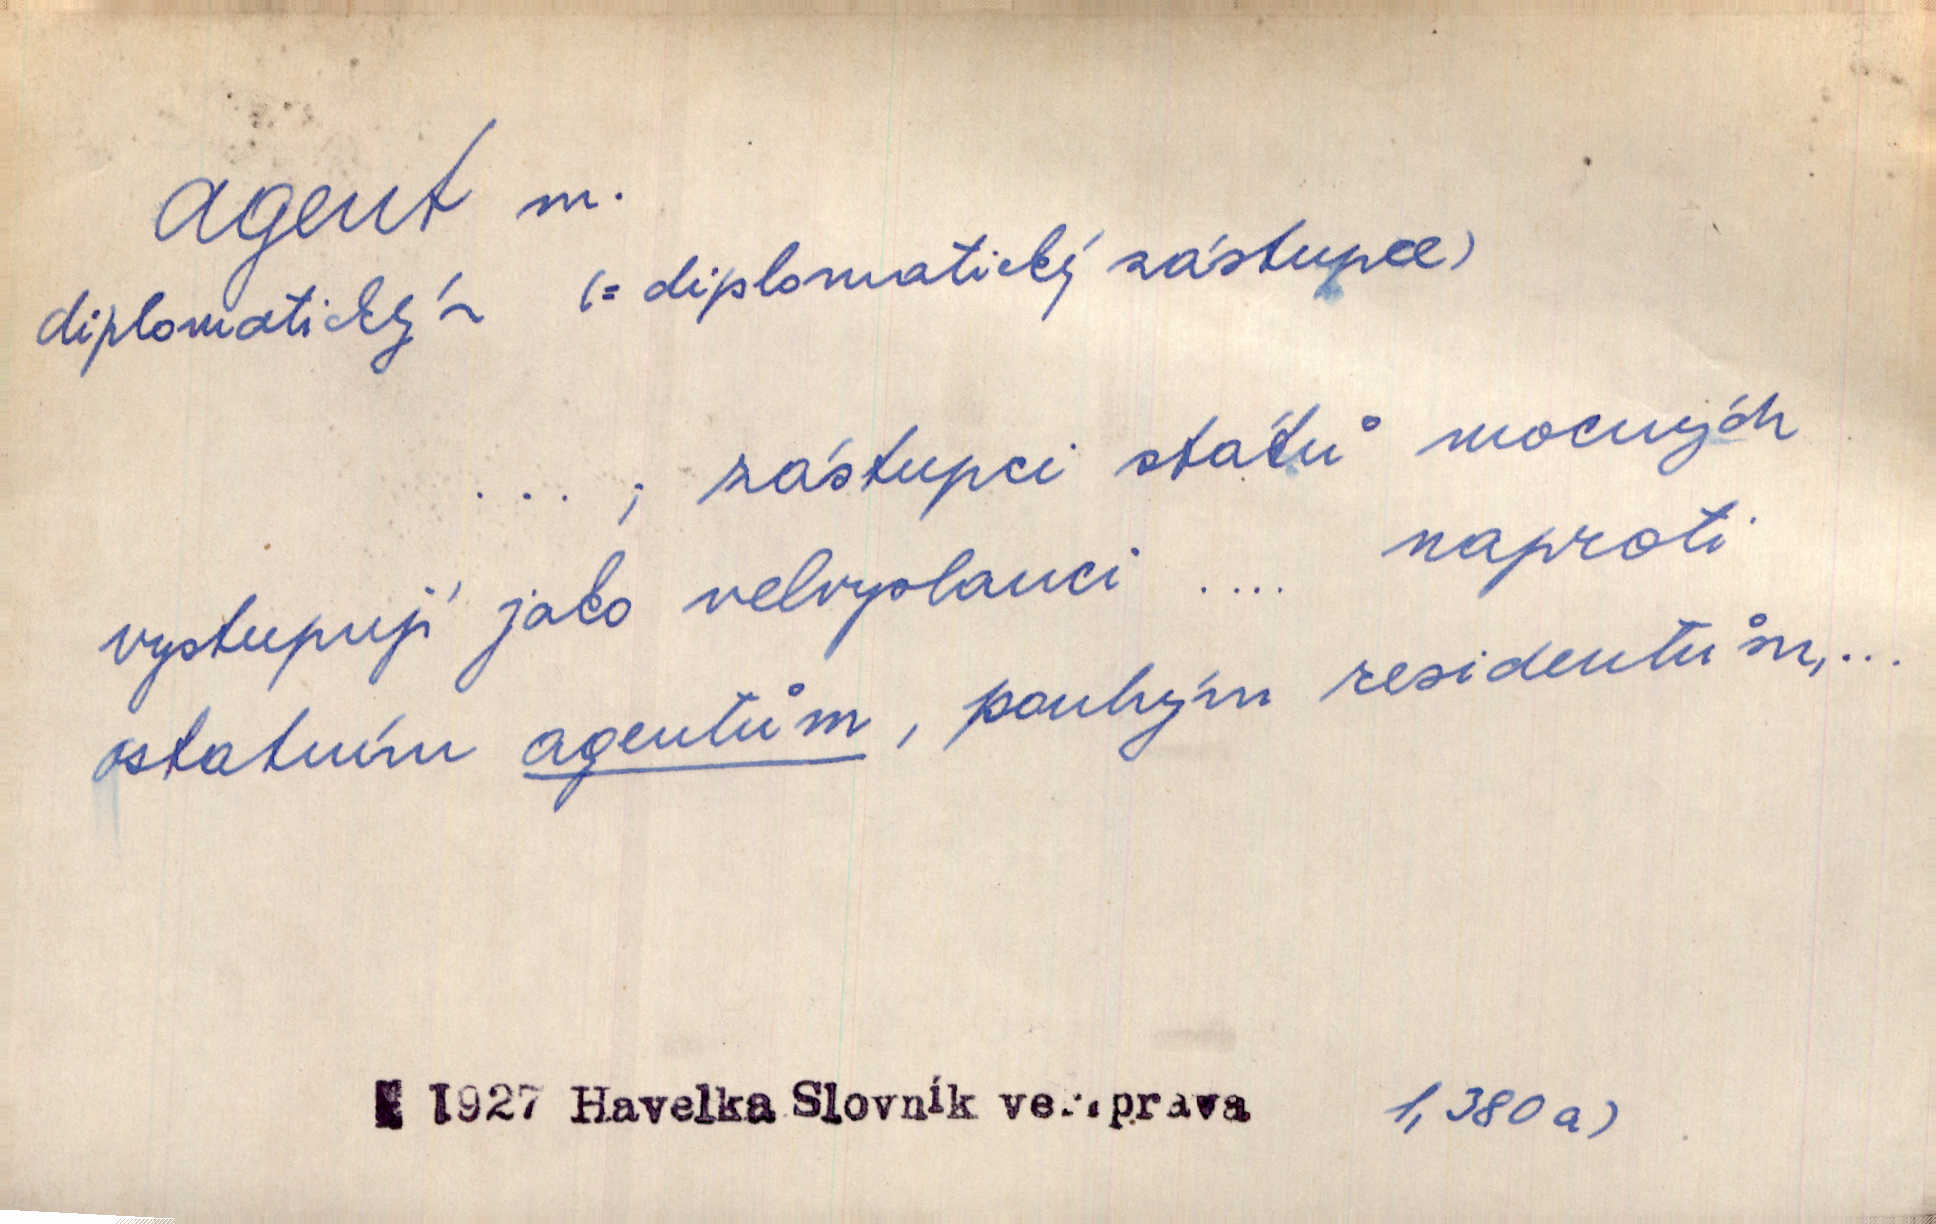 agent m.
diplomatický ~ (= diplomatický zástupce)
... ; zástupci států mocných
vystupují jako velvyslanci .... naproti
ostatním agentům, pouhým residentům, ...
1927 Havelka Slovník veř. prava 1, 380 a)